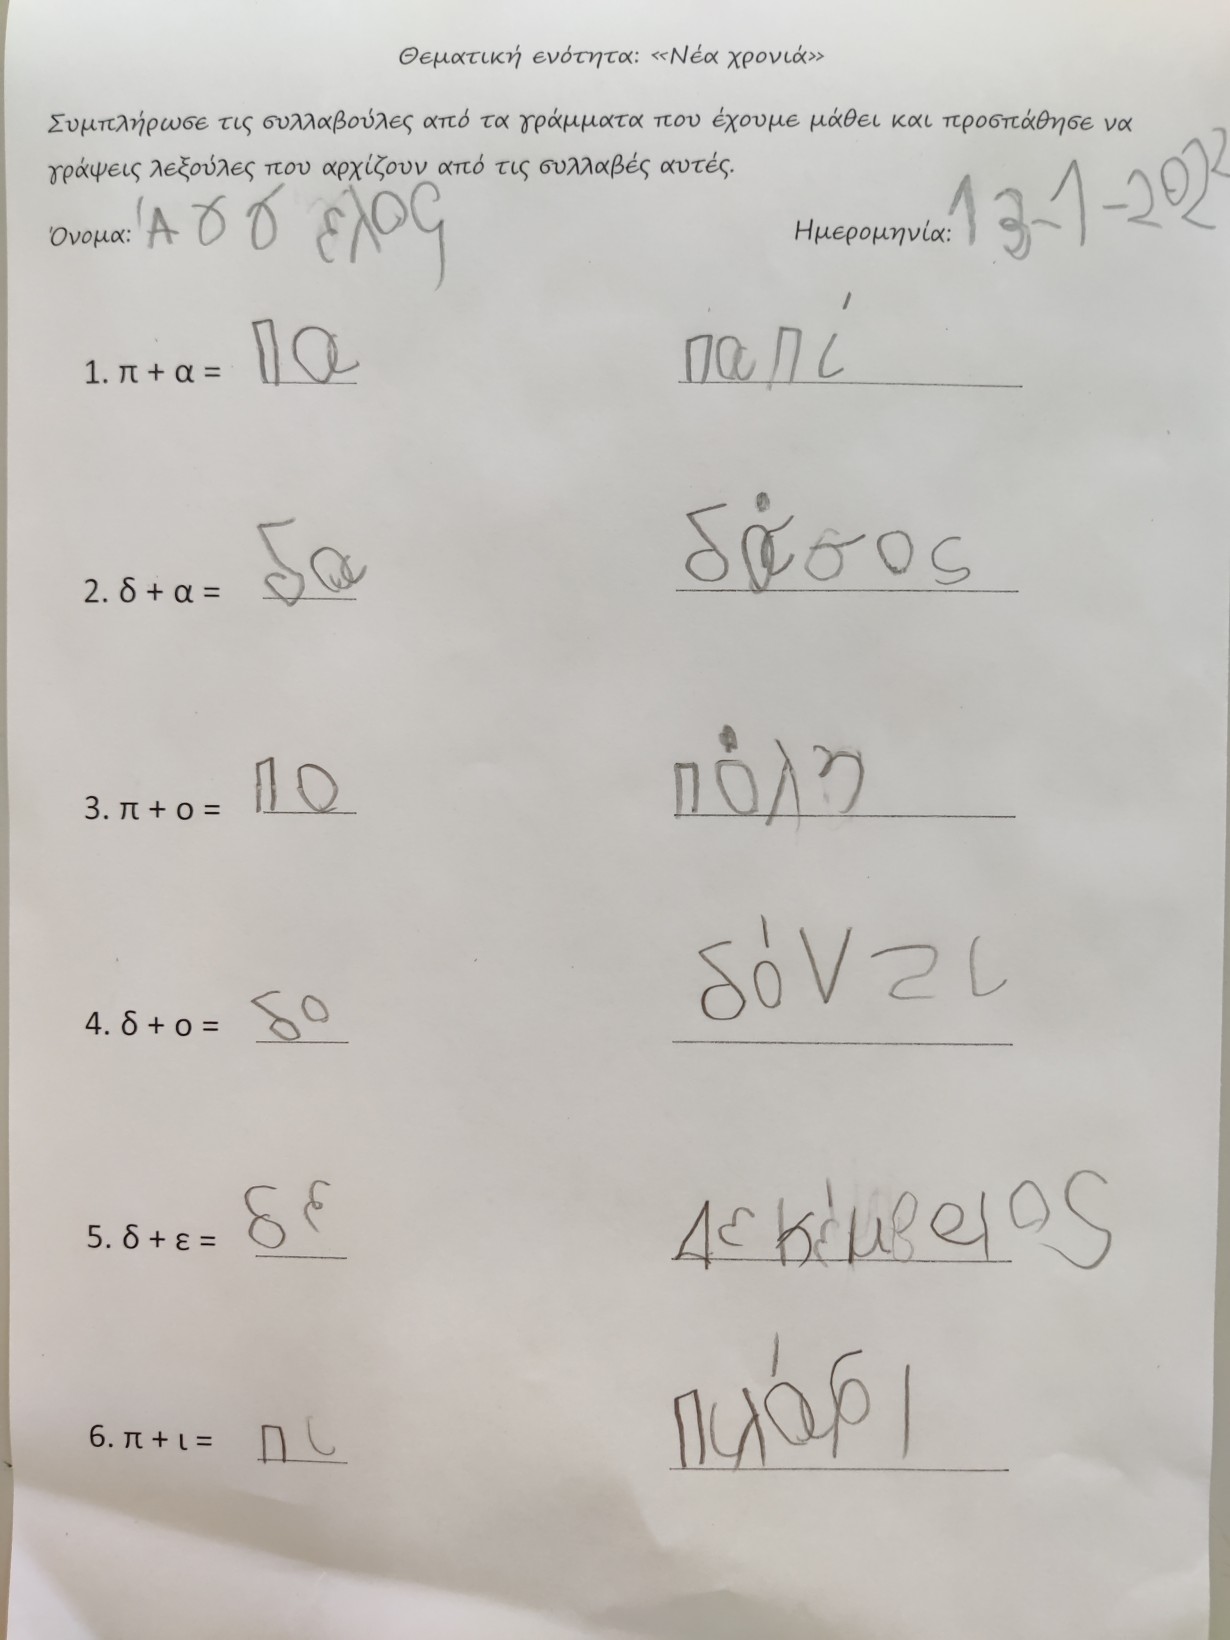 Θεματική ενότητα: «Νέα χρονιά»
Συμπλήρωσε τις συλλαβούλες από τα γράμματα που έχουμε μάθει και προσπάθησε να
γράψεις λεξούλες που αρχίζουν από τις συλλαβές αυτές.
Όνομα: Άγγελος Ημερομηνία: 13-1-2022
1. π + α = πα παπί
2. δ + α = δα δάσος
3. π + ο = πο πόλη
4. δ + ο = δο δόντι
5. δ + ε = δε Δεκέμβριος
6. π + ι = πι πιλάρι